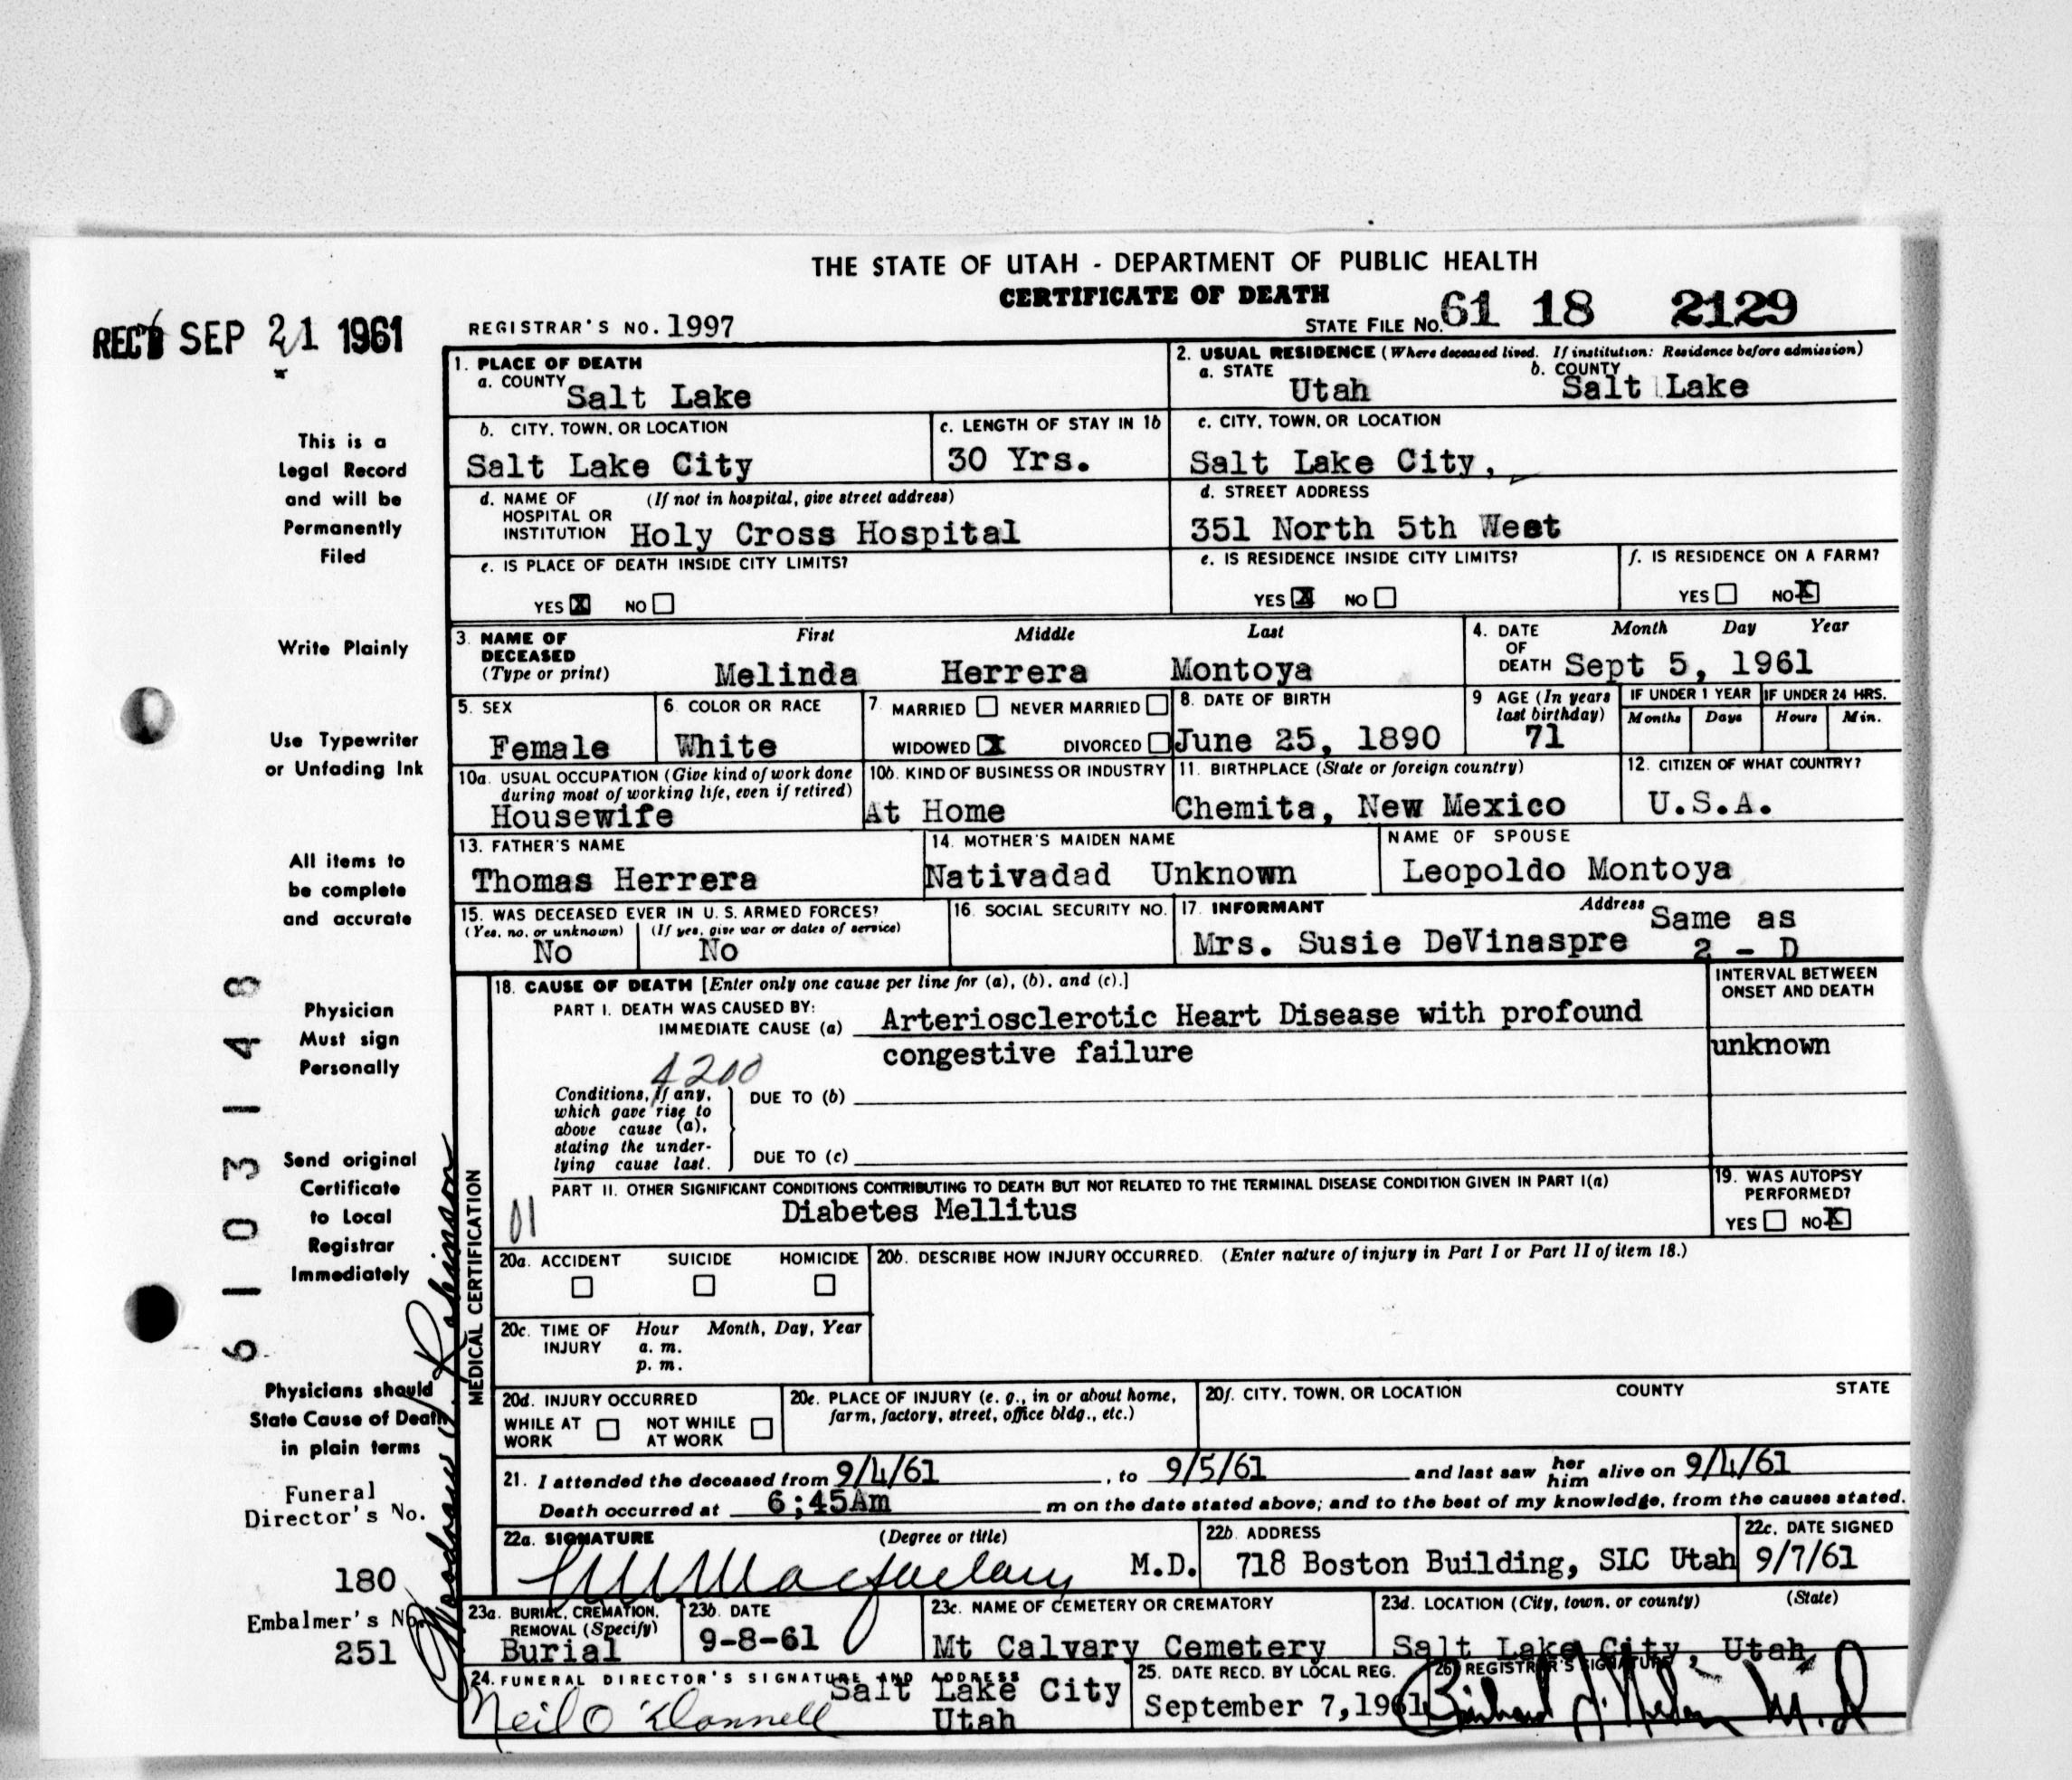 THE STATE OF UTAH - DEPARTMENT OF PUBLIC HEALTH
CERTIFICATE OF DEATH
REC'D SEP 21 1961
REGISTRAR'S NO. 1997
STATE FILE NO. 61 18 2129
1. PLACE OF DEATH
a. COUNTY Salt Lake
2. USUAL RESIDENCE (Where deceased lived. If institution: Residence before admission)
a. STATE Utah b. COUNTY Salt Lake
b. CITY, TOWN, OR LOCATION
Salt Lake City
c. LENGTH OF STAY IN 1b
30 Yrs.
c. CITY, TOWN, OR LOCATION
Salt Lake City,
d. NAME OF HOSPITAL OR INSTITUTION (If not in hospital, give street address)
Holy Cross Hospital
d. STREET ADDRESS
351 North 5th West
e. IS PLACE OF DEATH INSIDE CITY LIMITS?
YES X NO
e. IS RESIDENCE INSIDE CITY LIMITS?
YES X NO
f. IS RESIDENCE ON A FARM?
YES NO X
3. NAME OF DECEASED (Type or print)
First Middle Last
Melinda Herrera Montoya
4. DATE OF DEATH Month Day Year
Sept 5, 1961
5. SEX
Female
6. COLOR OR RACE
White
7. MARRIED NEVER MARRIED
WIDOWED X DIVORCED
8. DATE OF BIRTH
June 25, 1890
9 AGE (In years last birthday)
71
IF UNDER 1 YEAR
Months Days
IF UNDER 24 HRS.
Hours Min.
10a. USUAL OCCUPATION (Give kind of work done during most of working life, even if retired)
Housewife
10b. KIND OF BUSINESS OR INDUSTRY
At Home
11. BIRTHPLACE (State or foreign country)
Chemita, New Mexico
12. CITIZEN OF WHAT COUNTRY?
U.S.A.
13. FATHER'S NAME
Thomas Herrera
14. MOTHER'S MAIDEN NAME
Nativadad Unknown
NAME OF SPOUSE
Leopoldo Montoya
15. WAS DECEASED EVER IN U. S. ARMED FORCES?
(Yes, no, or unknown) (If yes, give war or dates of service)
No No
16. SOCIAL SECURITY NO.
17. INFORMANT Address
Mrs. Susie DeVinaspre Same as 2 - D
MEDICAL CERTIFICATION
18. CAUSE OF DEATH [Enter only one cause per line for (a), (b), and (c).]
PART I. DEATH WAS CAUSED BY:
IMMEDIATE CAUSE (a) Arteriosclerotic Heart Disease with profound
congestive failure
INTERVAL BETWEEN ONSET AND DEATH
unknown
4200
Conditions, if any, which gave rise to above cause (a), stating the underlying cause last.
DUE TO (b)
DUE TO (c)
PART II. OTHER SIGNIFICANT CONDITIONS CONTRIBUTING TO DEATH BUT NOT RELATED TO THE TERMINAL DISEASE CONDITION GIVEN IN PART I(a)
Diabetes Mellitus
19. WAS AUTOPSY PERFORMED?
YES NO X
20a. ACCIDENT SUICIDE HOMICIDE
20b. DESCRIBE HOW INJURY OCCURRED. (Enter nature of injury in Part I or Part II of item 18.)
20c. TIME OF INJURY Hour Month, Day, Year
a. m.
p. m.
20d. INJURY OCCURRED
WHILE AT WORK NOT WHILE AT WORK
20e. PLACE OF INJURY (e. g., in or about home, farm, factory, street, office bldg., etc.)
20f. CITY, TOWN, OR LOCATION COUNTY STATE
21. I attended the deceased from 9/4/61, to 9/5/61 and last saw her him alive on 9/4/61
Death occurred at 6;45Am m on the date stated above; and to the best of my knowledge, from the causes stated.
22a. SIGNATURE (Degree or title)
M.D.
22b. ADDRESS
718 Boston Building, SLC Utah
22c. DATE SIGNED
9/7/61
23a. BURIAL, CREMATION, REMOVAL (Specify)
Burial
23b. DATE
9-8-61
23c. NAME OF CEMETERY OR CREMATORY
Mt Calvary Cemetery
23d. LOCATION (City, town, or county) (State)
Salt Lake City, Utah
24. FUNERAL DIRECTOR'S SIGNATURE AND ADDRESS
Neil O'Donnell Salt Lake City
Utah
25. DATE RECD. BY LOCAL REG.
September 7, 1961
26. REGISTRAR'S SIGNATURE
M.D
This is a
Legal Record
and will be
Permanently
Filed
Write Plainly
Use Typewriter
or Unfading Ink
All items to
be complete
and accurate
Physician
Must sign
Personally
Send original
Certificate
to Local
Registrar
Immediately
Physicians should
State Cause of Death
in plain terms
Funeral
Director's No.
180
Embalmer's No.
251
61031148
Robinson